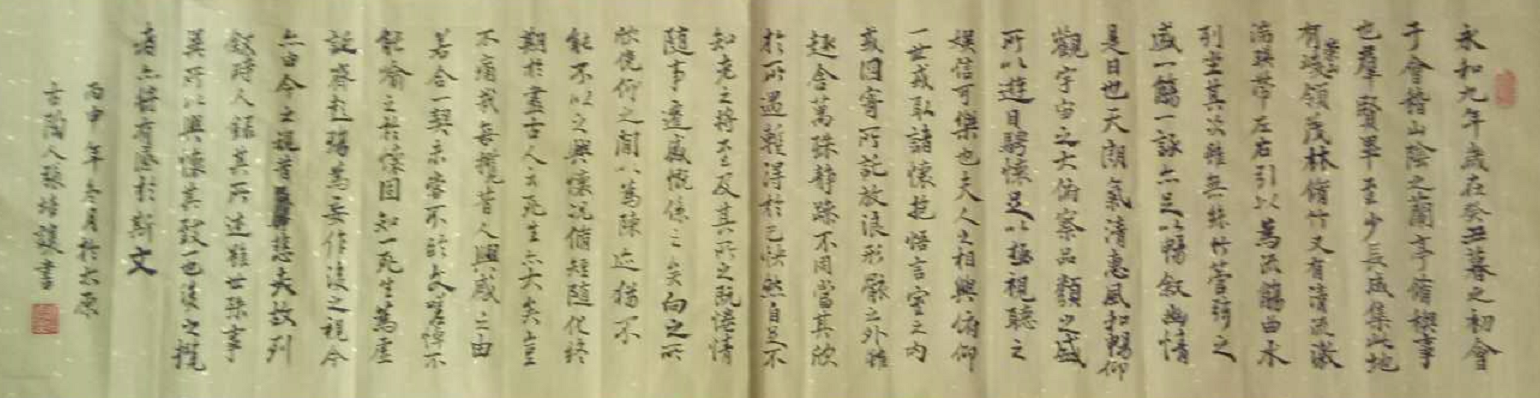 永和九年歲在癸丑暮之初會
于會稽山陰之蘭亭脩稧事
也羣賢畢至少長咸集此地
有崇山峻領茂林脩竹又有清流激
湍暎帶左右引以為流觴曲水
列坐其次雖無絲竹管弦之
盛一觴一詠亦足以暢敘幽情
是日也天朗氣清惠風和暢仰
觀宇宙之大俯察品類之盛
所以遊目騁懷足以極視聽之
娛信可樂也夫人之相與俯仰
一世或取諸懷抱悟言室之內
或因寄所託放浪形骸之外雖
趣舍萬殊靜躁不同當其欣
於所遇蹔得於己怏然自足不
知老之將至及其所之既惓情
隨事遷感慨係之矣向之所
欣俛仰之間以為陳迹猶不
能不以之興懷況脩短隨化終
期於盡古人云死生亦大矣豈
不痛哉每攬昔人興感之由
若合一契未嘗不臨文嗟悼不
能喻之於懷固知一死生為虛
誕齊彭殤為妄作後之視今
亦由今之視昔悲夫故列
敘時人錄其所述雖世殊事
異所以興懷其致一也後之攬
者亦將有感於斯文
丙申年冬月於太原
古蘭人張培 書